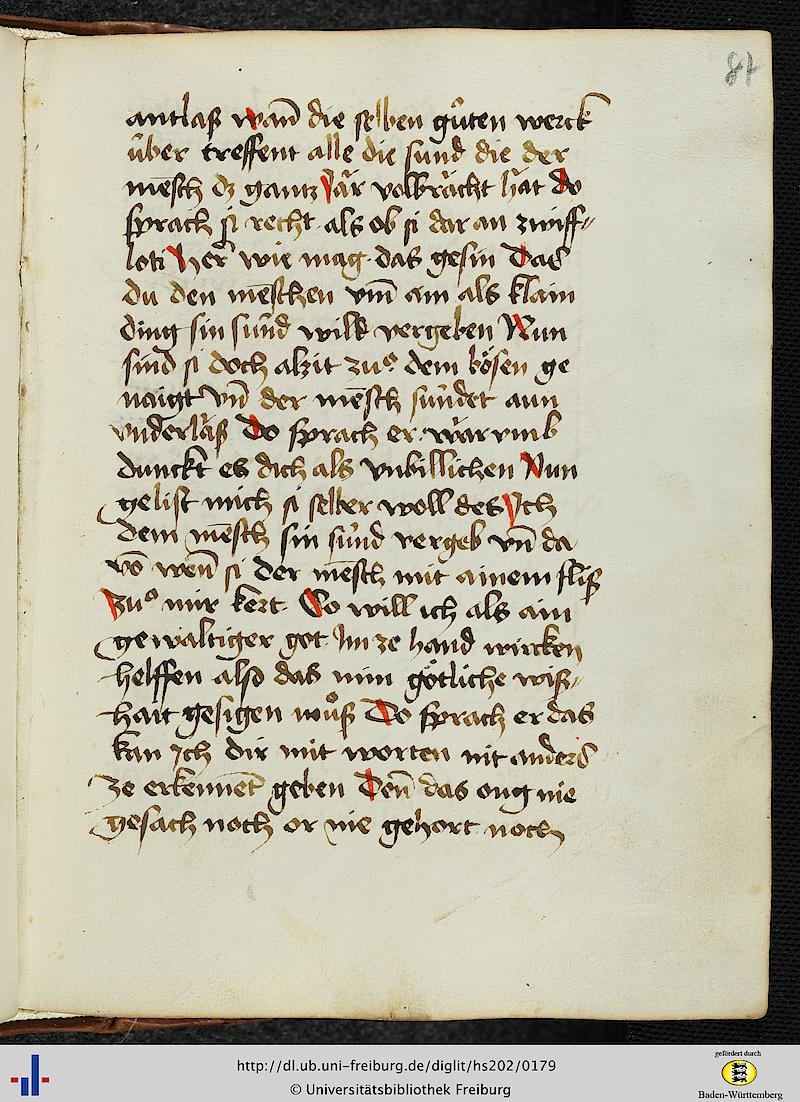 87
antlaß wan̄ die selben gůten werck
über treffent alle die sünd die der
mēsch dz gantz Jǎr volbrǎcht hǎt do
sprach si recht als ob si dar an zwiff⸗
loti Her wie mag das gesin Das
du den mēschen vm̄ ain als klain
ding sin sünd wilt vergeben Nun
sind si doch alzit zuͦ dem bösen ge
naigt vn̄ der mēsch sündet aun
vnderlǎß do sprach er wǎr vmb
dunckt es dich als vnbillichen Nun
gelist mich si selber woll des Ich
dem mēsch sin sünd vergeb vn̄ da
vō wen̄ si der mēsch mit ainem fliß
zuͦ mir kert So will ich als ain
gewaltiger got Im ze hand würcken
helffen also das min götliche wiß⸗
hait gesigen můß Do sprach er das
kan Ich dir mit worten nit anders
ze erkennet geben Den̄ das oug nie
gesach noch or nie gehort noch
http://dl.ub.uni-freiburg.de/diglit/hs202/0179
© Universitätsbibliothek Freiburg
gefördert durch
Baden-Württemberg